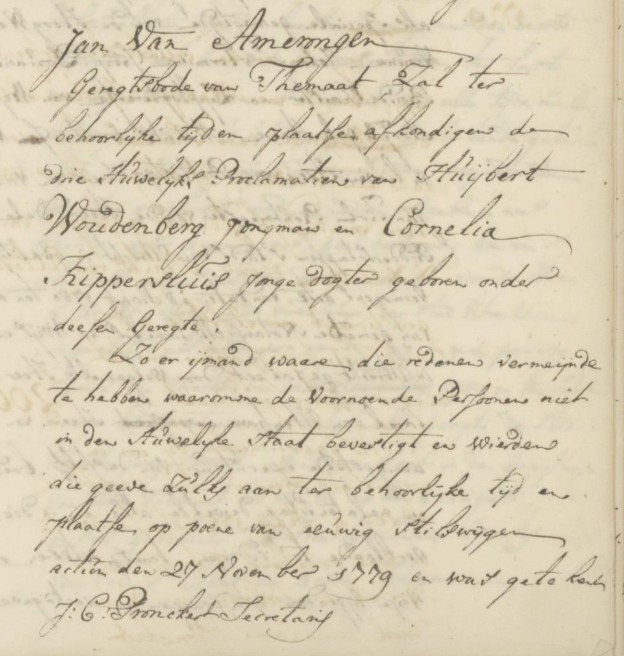 Jan Van Amerongen
Geregtsbode van Themaat Zal ter
behoorlijke tijden plaatse afkondigen de
drie Huwelijks Proclamatien van Huijbert
Woudenberg Jongman en Cornelia
Kippersluis Jonge dogter geboren onder
deesen Geregte.
Zo er ijmand waare die redenen vermeijnde
te hebben waaromme de Voornoemde Persoonen niet
in den Huwelyke Staat bevestigt en wierden
die geeve zulks aan ter behoorlijke tijd en
plaatse op poene van eeuwig stilswijgen
actum den 27 November 1779 en was getekent
J: C: Pronckert Secretaris